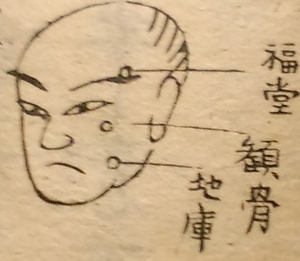 福堂
顴骨
地庫